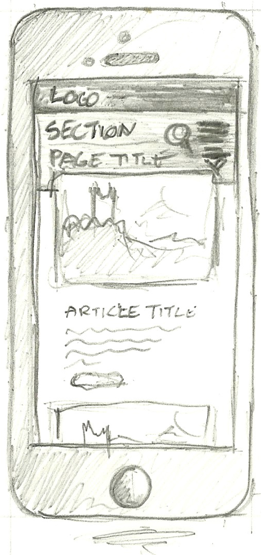 LOGO
SECTION
PAGE TITLE
ARTICLE TITLE